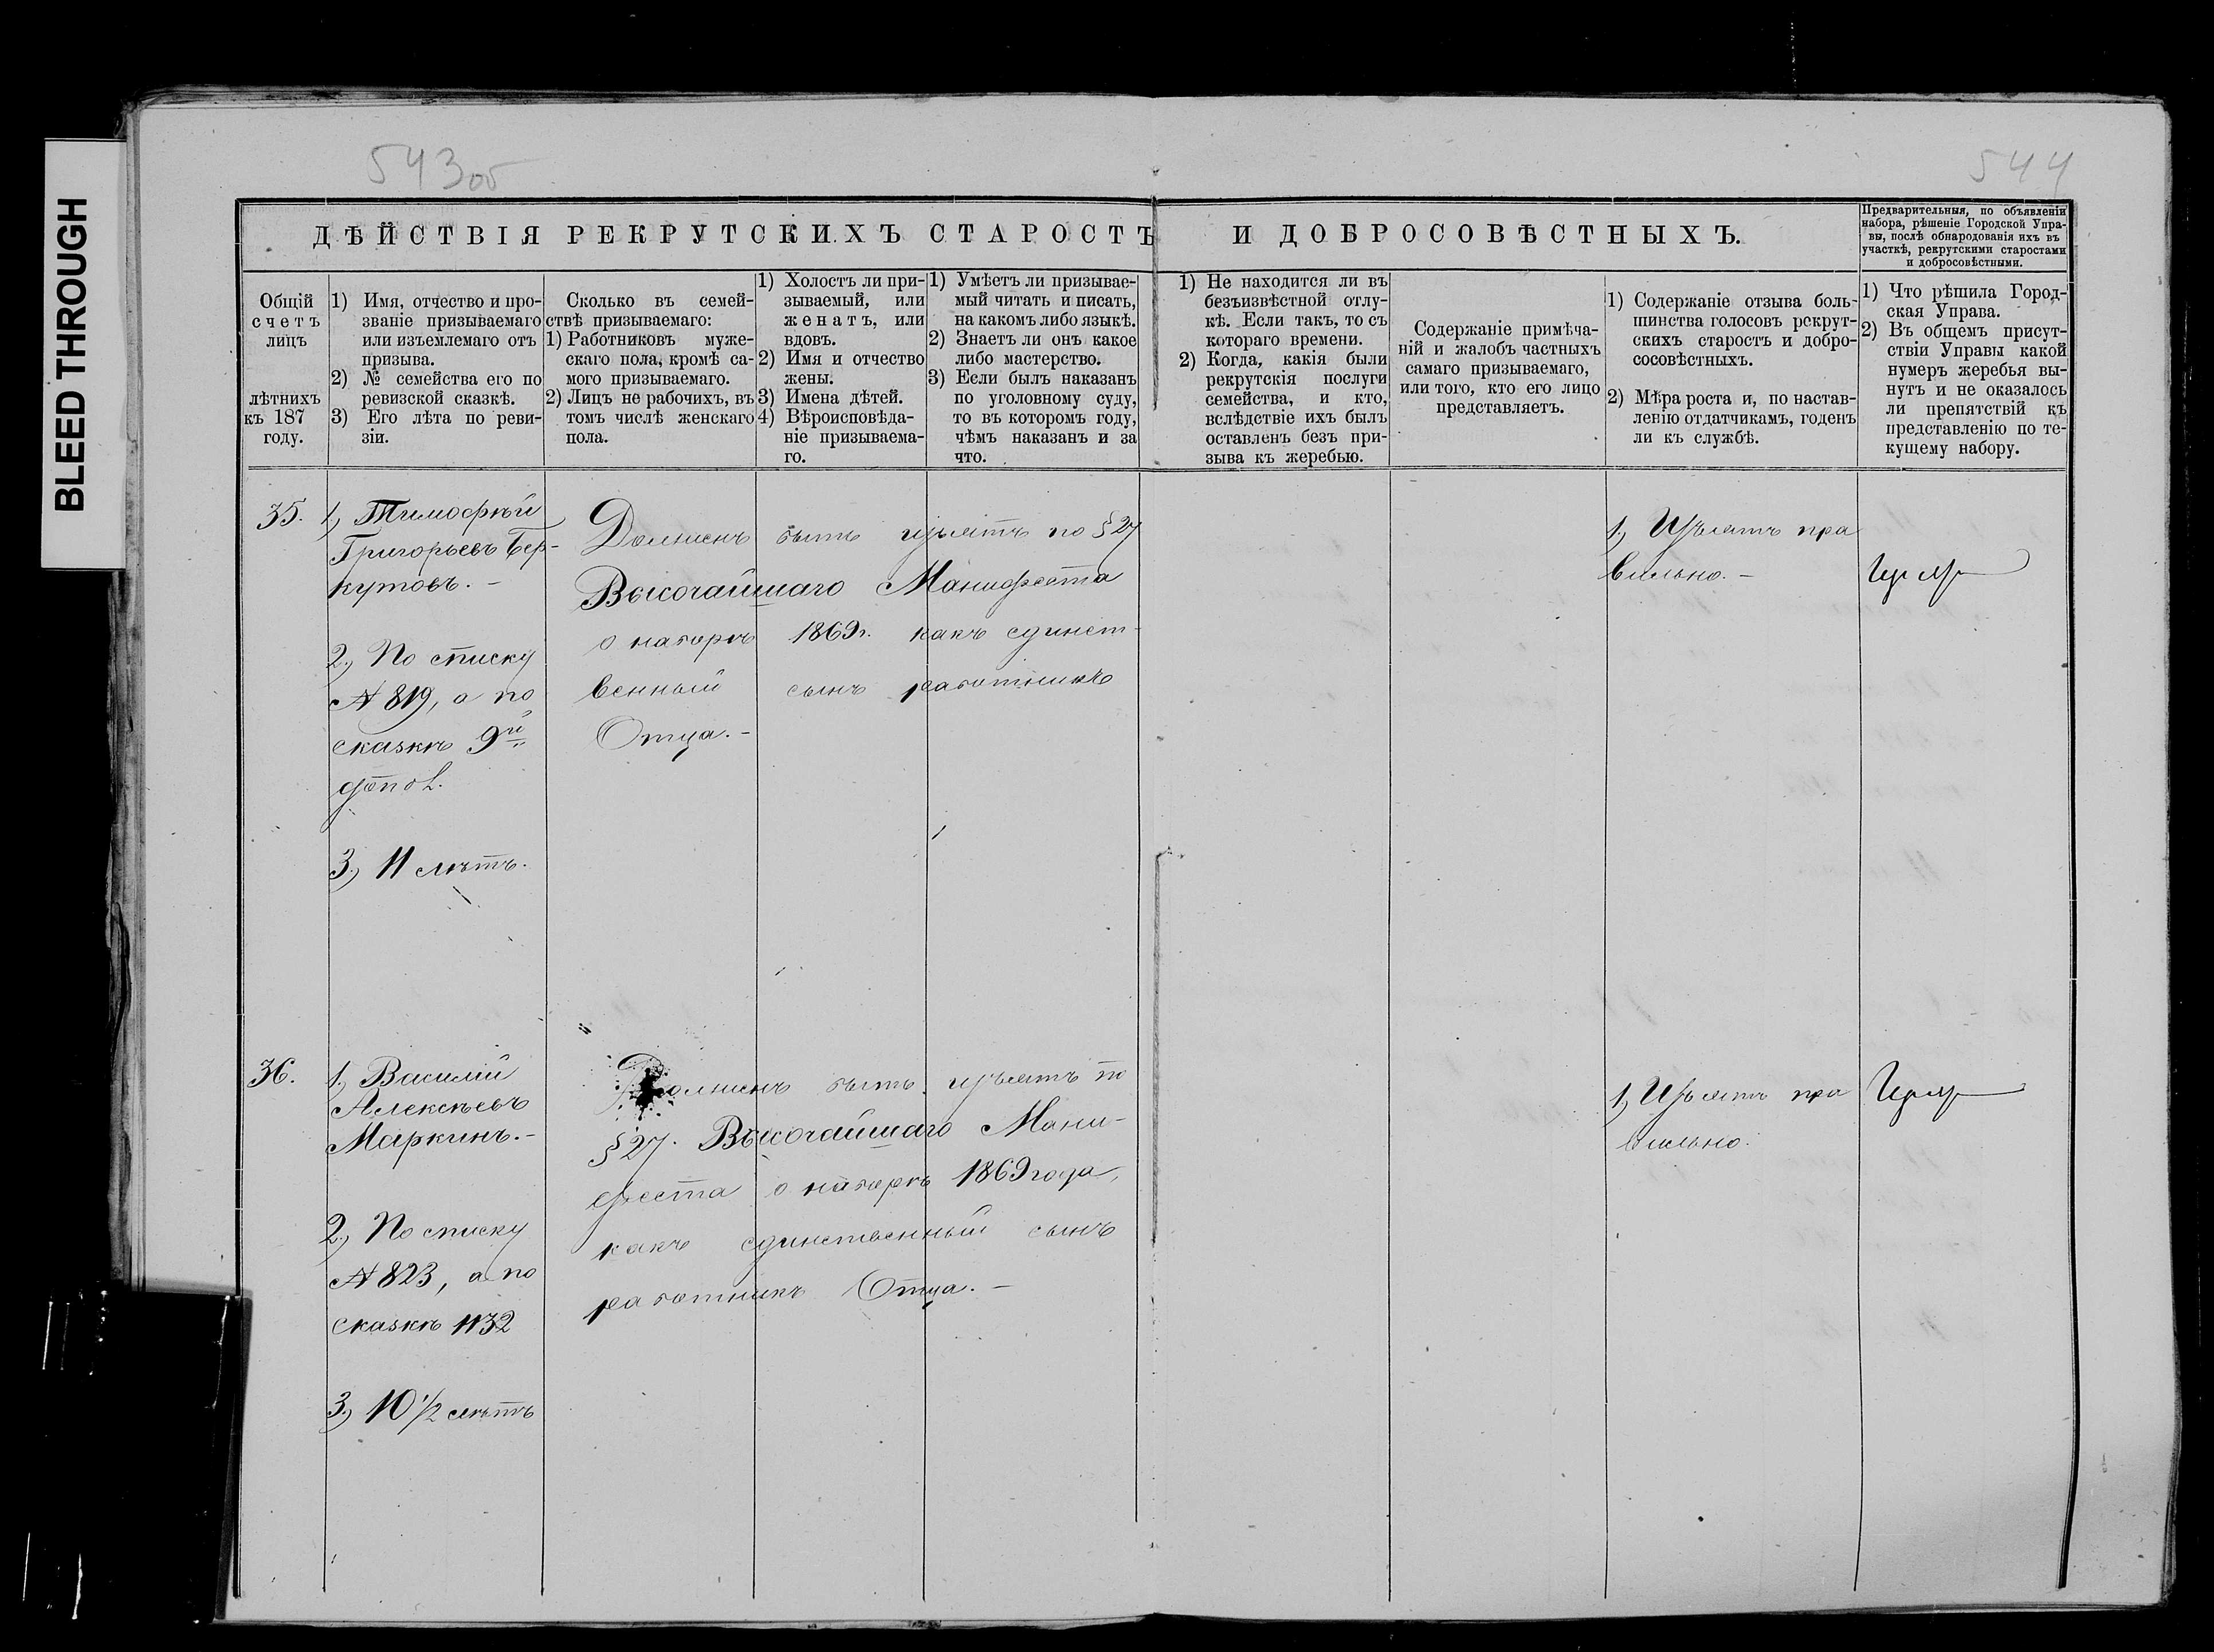 BLEED THROUGH
543об
544
ДѢЙСТВІЯ РЕКРУТСКИХЪ СТАРОСТЪ И ДОБРОСОВѢСТНЫХЪ.
Предварительныя, по объявленіи
набора, рѣшеніе Городской Упра-
вы, послѣ обнародованія ихъ въ
участкѣ, рекрутскими старостами
и добросовѣстными.
Общій
счетъ
лицъ
лѣтнихъ
къ 187
году.
1) Имя, отчество и про-
званіе призываемаго
или изъемлемаго отъ
призыва.
2) № семейства его по
ревизской сказкѣ.
3) Его лѣта по реви-
зіи.
Сколько въ семей-
ствѣ призываемаго:
1) Работниковъ муже-
скаго пола, кромѣ са-
мого призываемаго.
2) Лицъ не рабочихъ, въ
томъ числѣ женскаго
пола.
1) Холостъ ли при-
зываемый, или
женатъ, или
вдовъ.
2) Имя и отчество
жены.
3) Имена дѣтей.
4) Вѣроисповѣда-
ніе призываема-
го.
1) Умѣетъ ли призывае-
мый читать и писать,
на какомъ либо языкѣ.
2) Знаетъ ли онъ какое
либо мастерство.
3) Если былъ наказанъ
по уголовному суду,
то въ которомъ году,
чѣмъ наказанъ и за
что.
1) Не находится ли въ
безъизвѣстной отлу-
кѣ. Если такъ, то съ
котораго времени.
2) Когда, какія были
рекрутскія послуги
семейства, и кто,
вслѣдствіе ихъ былъ
оставленъ безъ при-
зыва къ жеребью.
Содержаніе примѣча-
ній и жалобъ частныхъ
самаго призываемаго,
или того, кто его лицо
представляетъ.
1) Содержаніе отзыва боль-
шинства голосовъ рекрут-
скихъ старостъ и добро-
совѣстныхъ.
2) Мѣра роста и, по настав-
ленію отдатчикамъ, годенъ
ли къ службѣ.
1) Что рѣшила Город-
ская Управа.
2) Въ общемъ присут-
ствіи Управы какой
нумеръ жеребья вы-
нутъ и не оказалось
ли препятствій къ
представленію по те-
кущему набору.
35.
1, Тимофѣй
Григорьевъ Бер-
кутовъ. –
2, По списку
№ 819, а по
сказкѣ 9й
3, 11 лѣтъ.
Долженъ быть изъятъ по §27
Высочайшаго Манифеста
о наборѣ 1869г. какъ единст-
венный сынъ работникъ
Отца. –
1, Изъятъ пра
вильно. –
36.
1, Василій
Алексѣевъ
Маркинъ. –
2, По списку
№ 823, а по
сказкѣ 1132
3, 10 1/2 лѣтъ
Долженъ быть изъятъ по
§27. Высочайшаго Мани-
феста о наборѣ 1869 года,
какъ единственный сынъ
работникъ Отца. –
1, Изъятъ пра
вильно.